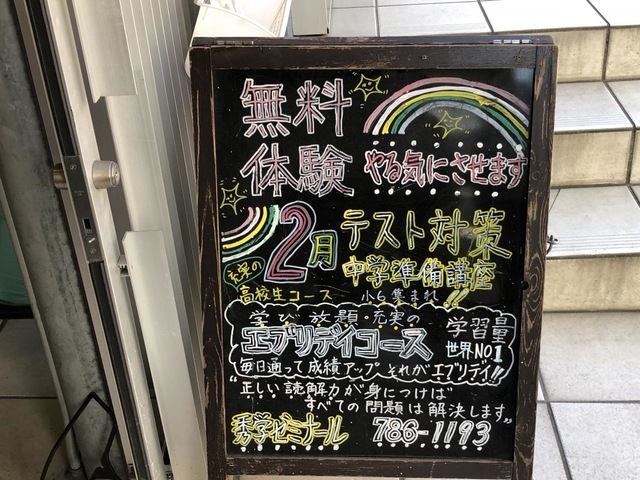 無料
体験
やる気にさせます
2月
テスト対策
中学準備講座
充実の
高校生コース
小6集まれ!!
学び放題・充実の
エブリデイコース
学習量
世界NO1
毎日通って成績アップ それがエブリデイ!!
"正しい読解力が身につけば
すべての問題は解決します"
秀学ゼミナール 786-1193